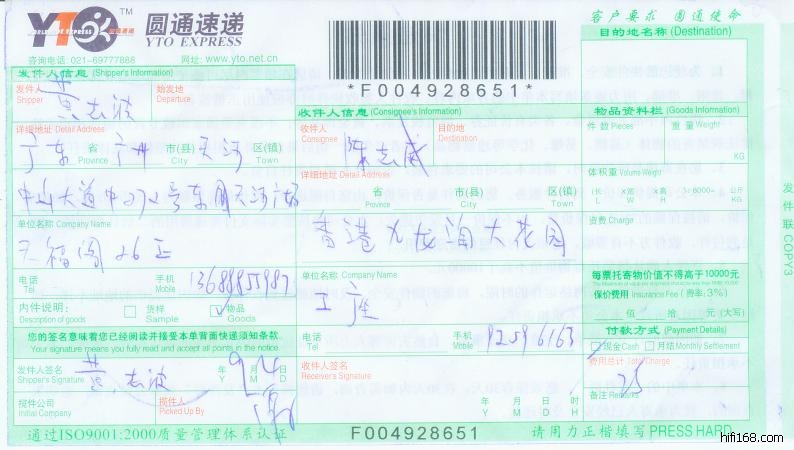 YTO
WORLDWIDE EXPRESS
圆通速递
圆通速递
YTO EXPRESS
咨询电话: 021-69777888
网址: www.yto.net.cn
*F004928651*
客户要求 圆通使命
目的地名称 (Destination)
发件人信息 (Shipper's Information)
发件人
Shipper
黄志波
始发地
Departure
详细地址 Detail Address
广东 省 Province 广州 市(县) City 天河 区(镇) Town
中山大道中272号东圃天河广场
单位名称 Company Name
天福阁26正
电话
Tel
手机
Mobile
13688855987
内件说明:
Description of goods
货样
Sample
物品
Goods
您的签名意味着您已经阅读并接受本单背面快递须知条款.
Your signature means you fully read and accept all points in the notice.
发件人签名
Shipper's Signature
黄志波
年 月 日
Y M D
9 4
揽件公司
Initial Company
揽件人
Picked Up By
收件人信息 (Consignee's Information)
收件人
Consignee
陈志威
目的地
Destination
详细地址 Detail Address
省 Province 市(县) City 区(镇) Town
香港九龙湾大花园
单位名称 Company Name
工座
电话
Tel
手机
Mobile
92596163
收件人签名
Receiver's Signature
年 月 日 时
Y M D H
物品资料栏 (Goods Information)
件 数 Pieces
重 量 Weight
KG
体积重量 Volume Weight
(长 L ×守 W ×高 H )÷6000= 公斤 KG
资费 Charge
每票托寄物价值不得高于10000元
保价费用 Insurance Fee (费率: 3%)
值 元 拾 元 (大写)
付款方式 (Payment Details)
现金Cash
月结 Monthly Settlement
费用总计 Total Charge
25
备注 Remarks
发件联 COPY3
通过ISO9001:2000质量管理体系认证
F004928651
请用力正楷填写 PRESS HARD
hifi168.com